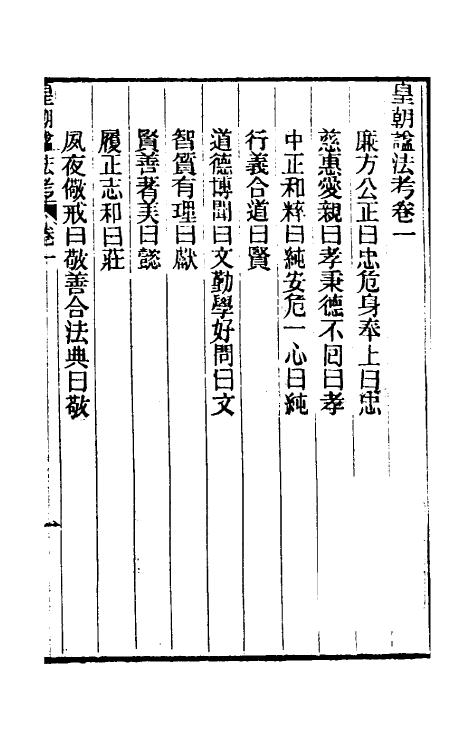 皇朝諡法考卷一
廉方公正曰忠危身奉上曰忠
慈惠愛親曰孝秉德不回曰孝
中正和粹曰純安危一心曰純
行義合道曰賢
道德博聞曰文勤學好問曰文
智質有理曰獻
賢善著美曰懿
履正志和曰莊
夙夜儆戒曰敬善合法典曰敬
皇朝諡法考 卷一 一